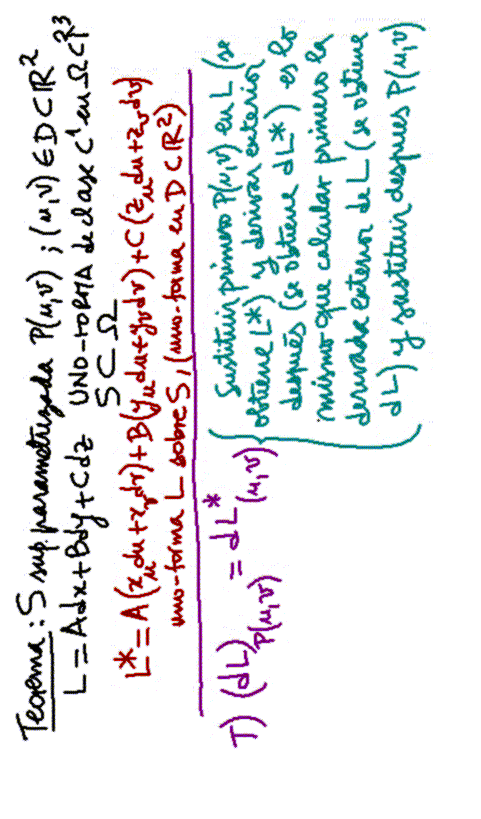 Teorema: S sup. parametrizada P(u,v) ; (u,v) ∈ D ⊂ ℝ²
L = Adx + Bdy + Cdz UNO-FORMA de clase C¹ en Ω ⊂ ℝ³
S ⊂ Ω
L* = A(x_u du + x_v dv) + B(y_u du + y_v dv) + C(z_u du + z_v dv)
uno-forma L sobre S, (uno-forma en D ⊂ ℝ²)
T) (dL)_P(u,v) = dL*_(u,v)
Sustituir primero P(u,v) en L (se
obtiene L*) y derivar exterior
después (se obtiene dL*) es lo
mismo que calcular primero la
derivada exterior de L (se obtiene
dL) y sustituir despues P(u,v)